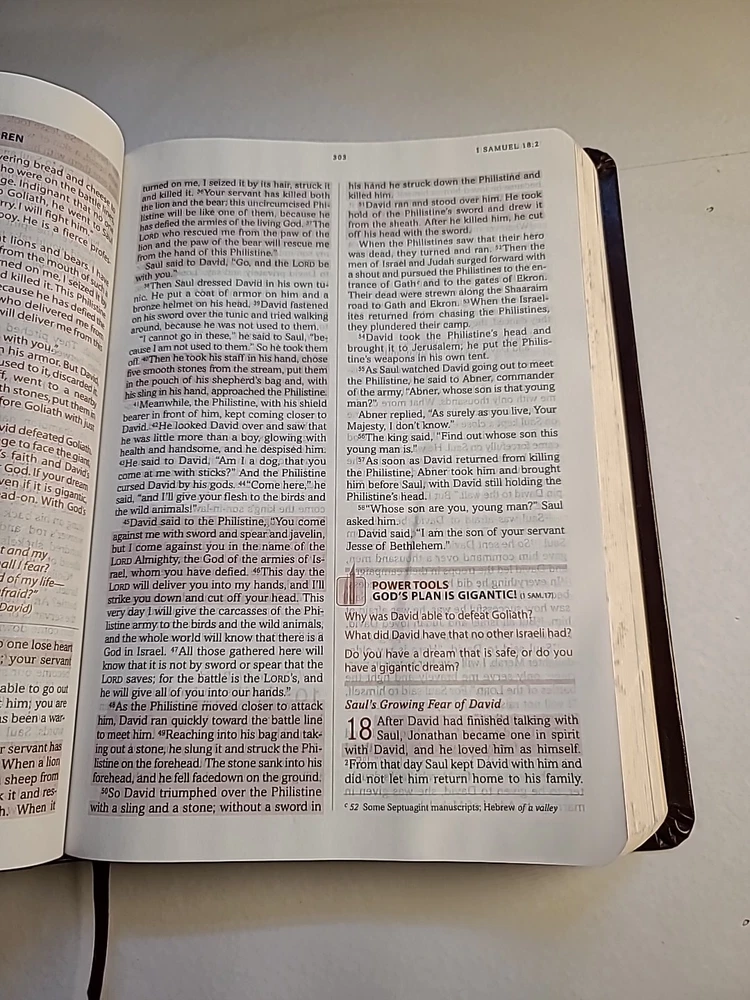 REN
303
I SAMUEL 18:2
turned on me, I seized it by its hair, struck it
and killed it. 36Your servant has killed both
the lion and the bear; this uncircumcised Phi-
listine will be like one of them, because he
has defied the armies of the living God. 37The
LORD who rescued me from the paw of the
lion and the paw of the bear will rescue me
from the hand of this Philistine."
Saul said to David, "Go, and the LORD be
with you."
38Then Saul dressed David in his own tu-
nic. He put a coat of armor on him and a
bronze helmet on his head. 39David fastened
on his sword over the tunic and tried walking
around, because he was not used to them.
"I cannot go in these," he said to Saul, "be-
cause I am not used to them." So he took them
off. 40Then he took his staff in his hand, chose
five smooth stones from the stream, put them
in the pouch of his shepherd's bag and, with
his sling in his hand, approached the Philistine.
41Meanwhile, the Philistine, with his shield
bearer in front of him, kept coming closer to
David. 42He looked David over and saw that
he was little more than a boy, glowing with
health and handsome, and he despised him.
43He said to David, "Am I a dog, that you
come at me with sticks?" And the Philistine
cursed David by his gods. 44"Come here," he
said, "and I'll give your flesh to the birds and
the wild animals!"
45David said to the Philistine, "You come
against me with sword and spear and javelin,
but I come against you in the name of the
LORD Almighty, the God of the armies of Is-
rael, whom you have defied. 46This day the
LORD will deliver you into my hands, and I'll
strike you down and cut off your head. This
very day I will give the carcasses of the Phi-
listine army to the birds and the wild animals,
and the whole world will know that there is a
God in Israel. 47All those gathered here will
know that it is not by sword or spear that the
LORD saves; for the battle is the LORD's, and
he will give all of you into our hands."
48As the Philistine moved closer to attack
him, David ran quickly toward the battle line
to meet him. 49Reaching into his bag and tak-
ing out a stone, he slung it and struck the Phi-
listine on the forehead. The stone sank into his
forehead, and he fell facedown on the ground.
50So David triumphed over the Philistine
with a sling and a stone; without a sword in
his hand he struck down the Philistine and
killed him.
51David ran and stood over him. He took
hold of the Philistine's sword and drew it
from the sheath. After he killed him, he cut
off his head with the sword.
When the Philistines saw that their hero
was dead, they turned and ran. 52Then the
men of Israel and Judah surged forward with
a shout and pursued the Philistines to the en-
trance of Gathc and to the gates of Ekron.
Their dead were strewn along the Shaaraim
road to Gath and Ekron. 53When the Israel-
ites returned from chasing the Philistines,
they plundered their camp.
54David took the Philistine's head and
brought it to Jerusalem; he put the Philis-
tine's weapons in his own tent.
55As Saul watched David going out to meet
the Philistine, he said to Abner, commander
of the army, "Abner, whose son is that young
man?"
Abner replied, "As surely as you live, Your
Majesty, I don't know."
56The king said, "Find out whose son this
young man is."
57As soon as David returned from killing
the Philistine, Abner took him and brought
him before Saul, with David still holding the
Philistine's head.
58"Whose son are you, young man?" Saul
asked him.
David said, "I am the son of your servant
Jesse of Bethlehem."
POWERTOOLS
GOD'S PLAN IS GIGANTIC! (1 SAM. 17)
Why was David able to defeat Goliath?
What did David have that no other Israeli had?
Do you have a dream that is safe, or do you
have a gigantic dream?
Saul's Growing Fear of David
18 After David had finished talking with
Saul, Jonathan became one in spirit
with David, and he loved him as himself.
2From that day Saul kept David with him and
did not let him return home to his family.
c 52 Some Septuagint manuscripts; Hebrew of a valley